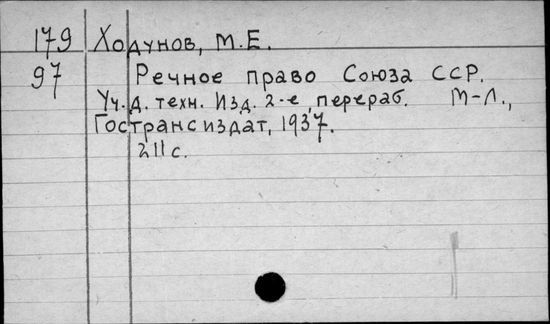 179 Ходунов, М.Е.
97 Речное право Союза ССР.
Уч.д. техн. Изд. 2-е, перераб. М-Л.,
Гострансиздат, 1937.
211 с.